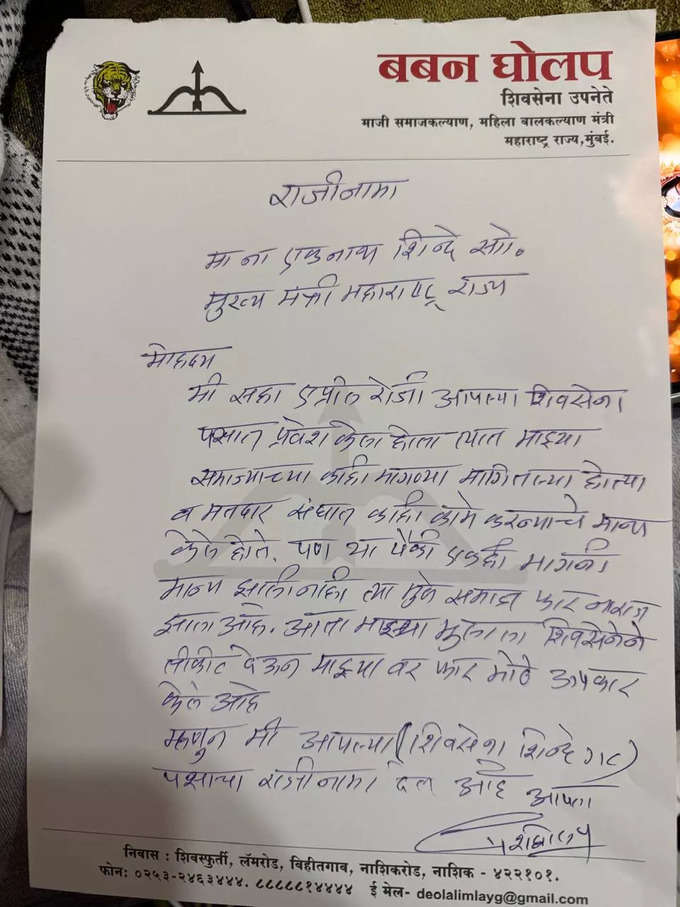 बबन घोलप
शिवसेना उपनेते
माजी समाजकल्याण, महिला बालकल्याण मंत्री
महाराष्ट्र राज्य,मुंबई.
राजीनामा
मा ना एकनाथ शिन्दे सो.
मुख्य मंत्री महाराष्ट्र राज्य
मोहदय
मी सहा एप्रील रोजी आपल्या शिवसेना
पक्षात प्रवेश केला होता त्यात माझ्या
समाज्याच्या काही मागण्या मागितल्या होत्या
व मतदार संघात काही कामे करन्याचे मान्य
केले होते. पण या पैकी एकही मागनी
मान्य झाली नाही त्या मुळे समाज फार नाराज
झाला आहे. आता माझ्या मुलाला शिवसेनेने
तीकीट देऊन माझ्या वर फार मोठे उपकार
केले आहे
म्हणुन मी आपल्या (शिवसेना शिन्दे गट)
पक्षाचा राजीनामा देत आहे आपला
निवास : शिवस्फुर्ती, लॅमरोड, विहीतगाव, नाशिकरोड, नाशिक - ४२२१०१.
फोनः ०२५३-२४६३४४४. ८८८८८१४४४४ ई मेल- deolalimlayg@gmail.com